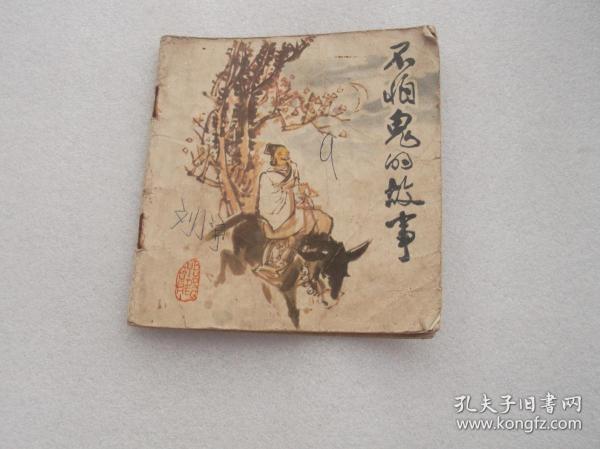 不怕鬼的故事
9
孔夫子旧書网
www.kongfz.com